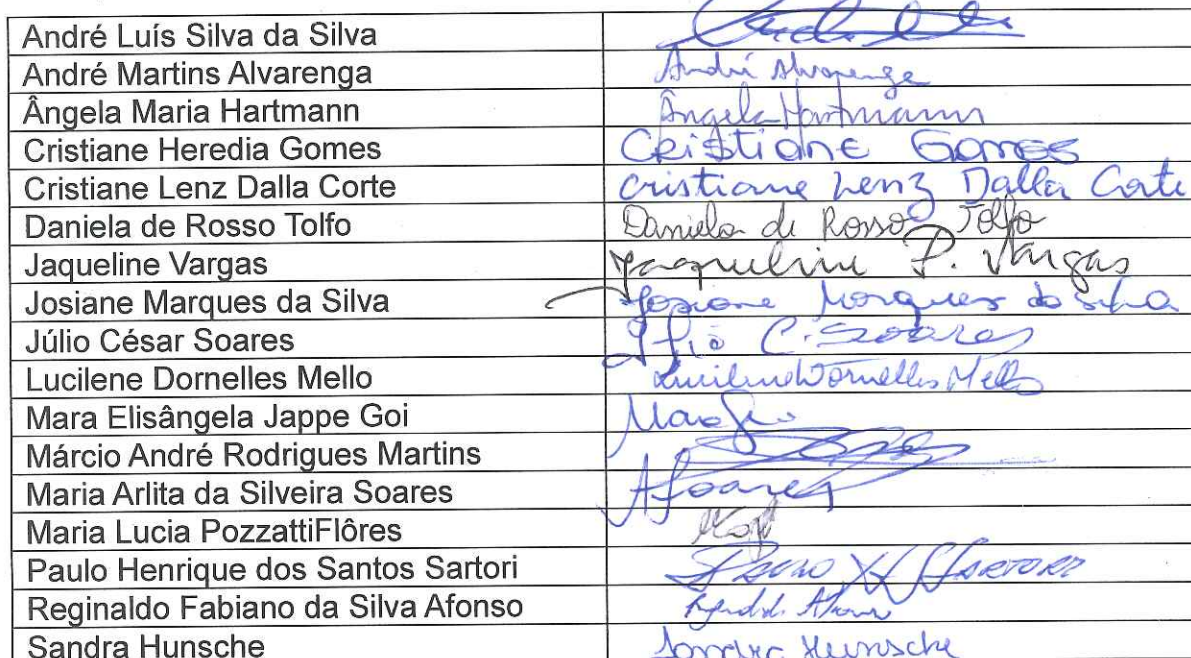 André Luís Silva da Silva
André Martins Alvarenga André Alvarenga
Ângela Maria Hartmann Ângela Hartmann
Cristiane Heredia Gomes Cristiane Gomes
Cristiane Lenz Dalla Corte Cristiane Lenz Dalla Corte
Daniela de Rosso Tolfo Daniela de Rosso Tolfo
Jaqueline Vargas Jaqueline P. Vargas
Josiane Marques da Silva Josiane Marques da Silva
Júlio César Soares C. Soares
Lucilene Dornelles Mello Lucilene Dornelles Mello
Mara Elisângela Jappe Goi Mara Goi
Márcio André Rodrigues Martins
Maria Arlita da Silveira Soares ASoares
Maria Lucia PozzattiFlôres
Paulo Henrique dos Santos Sartori Paulo H S Sartori
Reginaldo Fabiano da Silva Afonso
Sandra Hunsche Sandra Hunsche